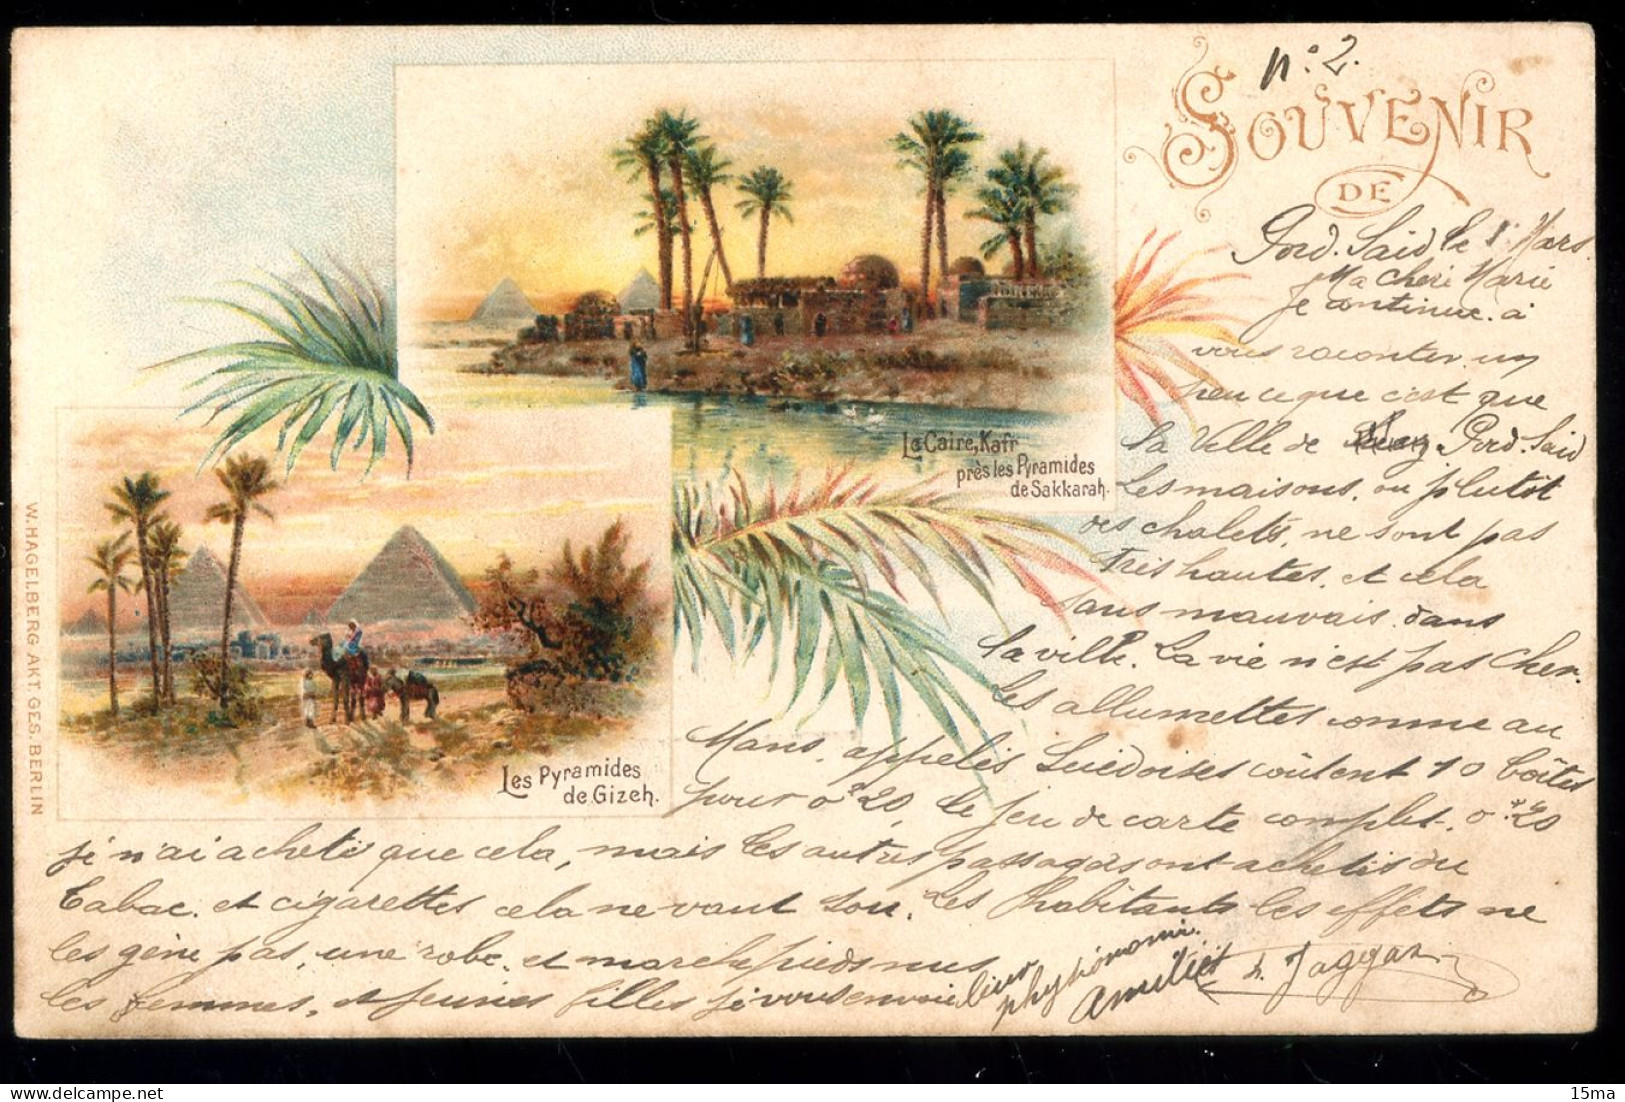 n° 2.
SOUVENIR
DE
Pord. Said le 1 Mars.
Ma cheri Marie
je continue. a
vous raconter un
peu ce que c'est que
la Ville de Pord. Said
Les maisons, ou plutôt
des chalets, ne sont pas
très hautes, et cela
sans mauvais. dans
la ville. La vie n'est pas cher.
Les allumettes comme au
Mans, appelés Suédoises coûtent 10 boîtes
pour 0f20, le jeu de carte complet. 0f20
je n'ai acheté que cela, mais les autres passagers ont achetés du
Tabac. et cigarettes cela ne vaut sou. Les habitants les effets ne
les gène pas, une robe. et marche pieds nus
les femmes, et jeunes filles je vous envoie leur
physionomi.
Amitiét
Jaggar
Le Caire, Kafr
près les Pyramides
de Sakkarah.
Les Pyramides
de Gizeh.
W. HAGELBERG AKT. GES. BERLIN
15ma